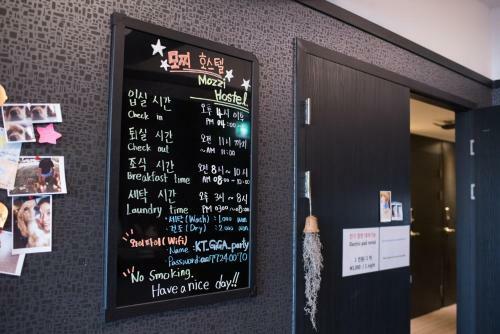 모찌 호스텔
Mozzi
Hostel.
입실 시간 오후 4시 이후
Check in PM 04:00~
퇴실 시간 오전 11시 까지
Check out ~AM 11:00
조식 시간 오전 8시~10시
Breakfast time AM 08:00~10:00
세탁 시간 오후 3시~8시
Laundry time PM 03:00~08:00
·세탁 (Wash) : 1,000 won
·건조 (Dry) : 2,000 won
와이파이 (WiFi)
·Name : KT.GGA_party
·Password:
No Smoking.
Have a nice day!!